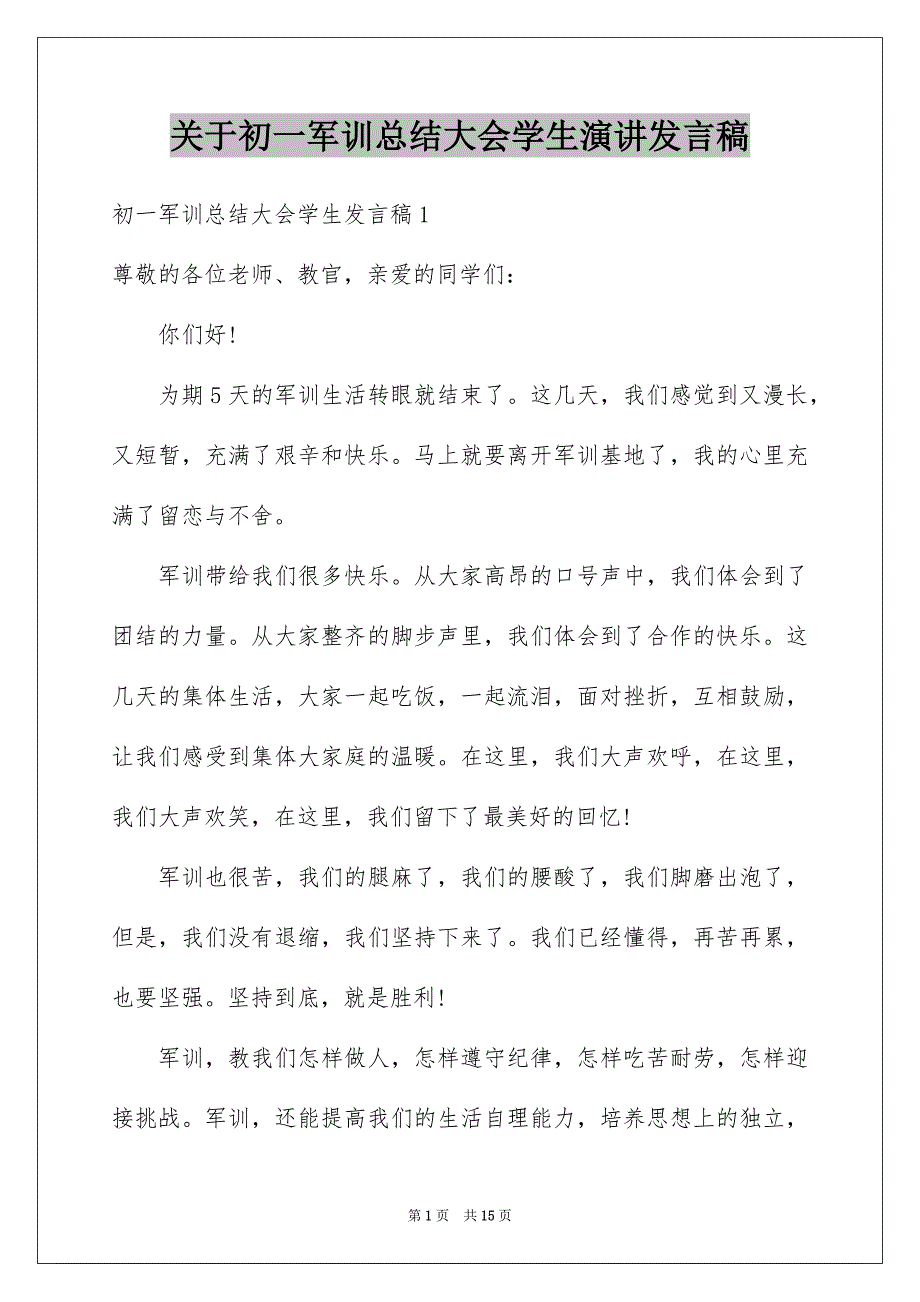 关于初一军训总结大会学生演讲发言稿
初一军训总结大会学生发言稿1
尊敬的各位老师、教官，亲爱的同学们：
你们好!
为期5天的军训生活转眼就结束了。这几天，我们感觉到又漫长，
又短暂，充满了艰辛和快乐。马上就要离开军训基地了，我的心里充
满了留恋与不舍。
军训带给我们很多快乐。从大家高昂的口号声中，我们体会到了
团结的力量。从大家整齐的脚步声里，我们体会到了合作的快乐。这
几天的集体生活，大家一起吃饭，一起流泪，面对挫折，互相鼓励，
让我们感受到集体大家庭的温暖。在这里，我们大声欢呼，在这里，
我们大声欢笑，在这里，我们留下了最美好的回忆!
军训也很苦，我们的腿麻了，我们的腰酸了，我们脚磨出泡了，
但是，我们没有退缩，我们坚持下来了。我们已经懂得，再苦再累，
也要坚强。坚持到底，就是胜利!
军训，教我们怎样做人，怎样遵守纪律，怎样吃苦耐劳，怎样迎
接挑战。军训，还能提高我们的生活自理能力，培养思想上的独立，
第1页 共15页